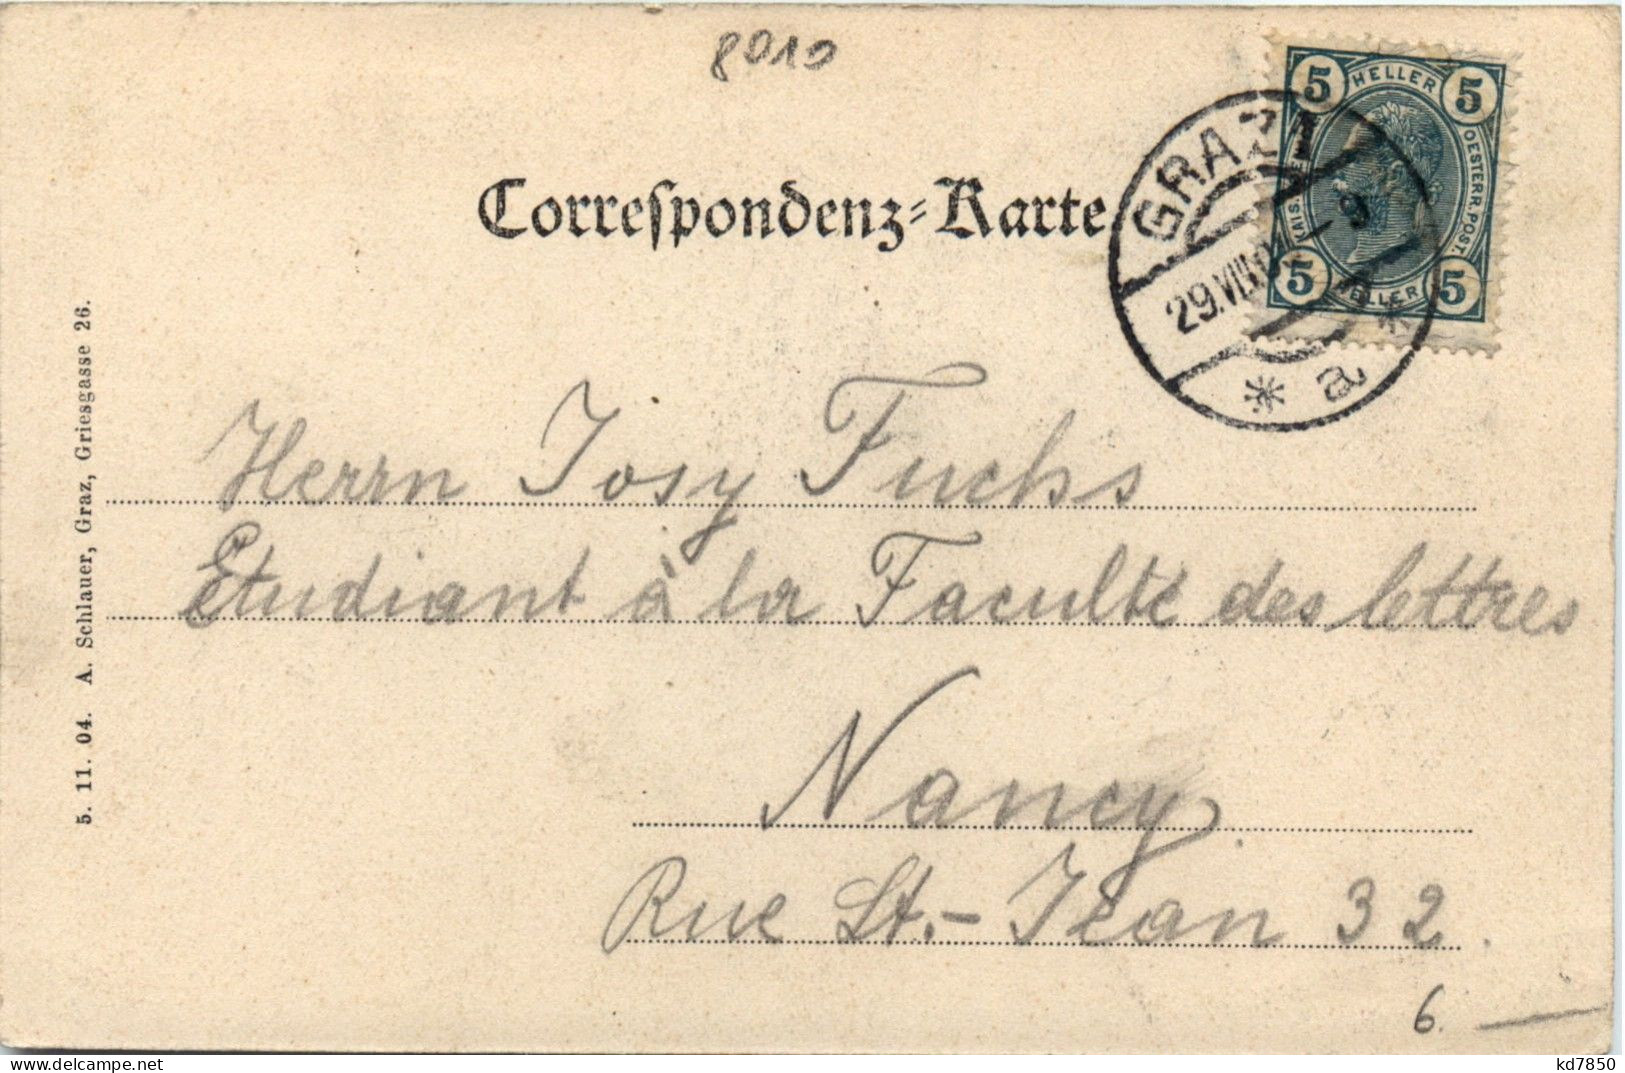 8010
Correspondenz-Karte
5 HELLER 5
KAIS.
OESTERR. POST.
5 HELLER 5
GRAZ 1
29.VIII
* a *
Herrn Josy Fuchs
Etudiant à la Faculté des lettres
Nancy
Rue St.-Jean 32.
6.—
5. 11. 04. A. Schlauer, Graz, Griesgasse 26.
kd7850